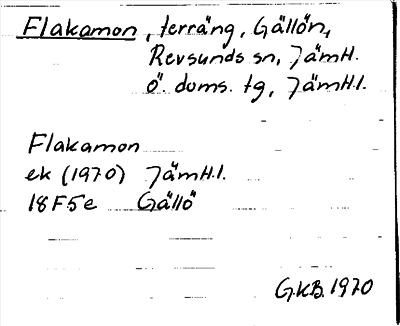 Flakamon, terräng, Gällön,
Revsunds sn, Jämtl.
ö. doms. tg, Jämtl.
Flakamon
ek (1970) Jämtl.
18F5e Gällö
G.K.B. 1970